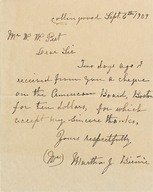 Collingwood Sept 6th/909
Mr W. W. Peet
Dear Sir
Two days ago I
received from you a cheque
on the American Board, Boston
for ten dollars, for which
accept my sincere thanks,
Yours respectfully
(Mrs) Martha J.